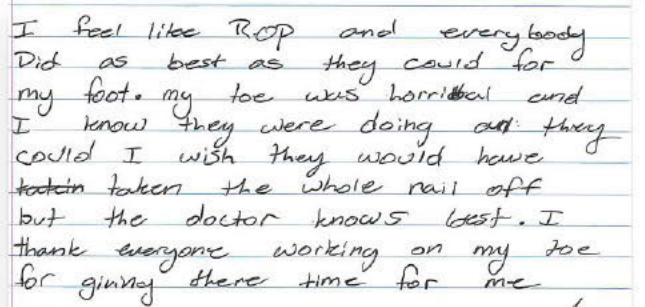 I feel like ROP and everybody
Did as best as they could for
my foot. my toe was horribal and
I know they were doing all they
could I wish they would have
taken the whole nail off
but the doctor knows best. I
thank everyone working on my toe
for giving there time for me